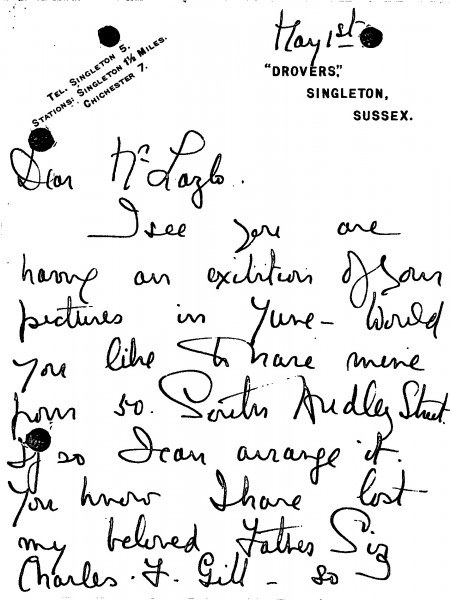 May 1st
TEL. SINGLETON 5.
STATIONS: SINGLETON 1½ MILES.
CHICHESTER 7.
"DROVERS,"
SINGLETON,
SUSSEX.
Dear Mr Lazlo.
I see you are
having an exibition of your
pictures in June - Would
you like to have mine
from 50. South Audley Street.
If so I can arrange it.
You know I have lost
my beloved Father Sir
Charles. F. Gill - so